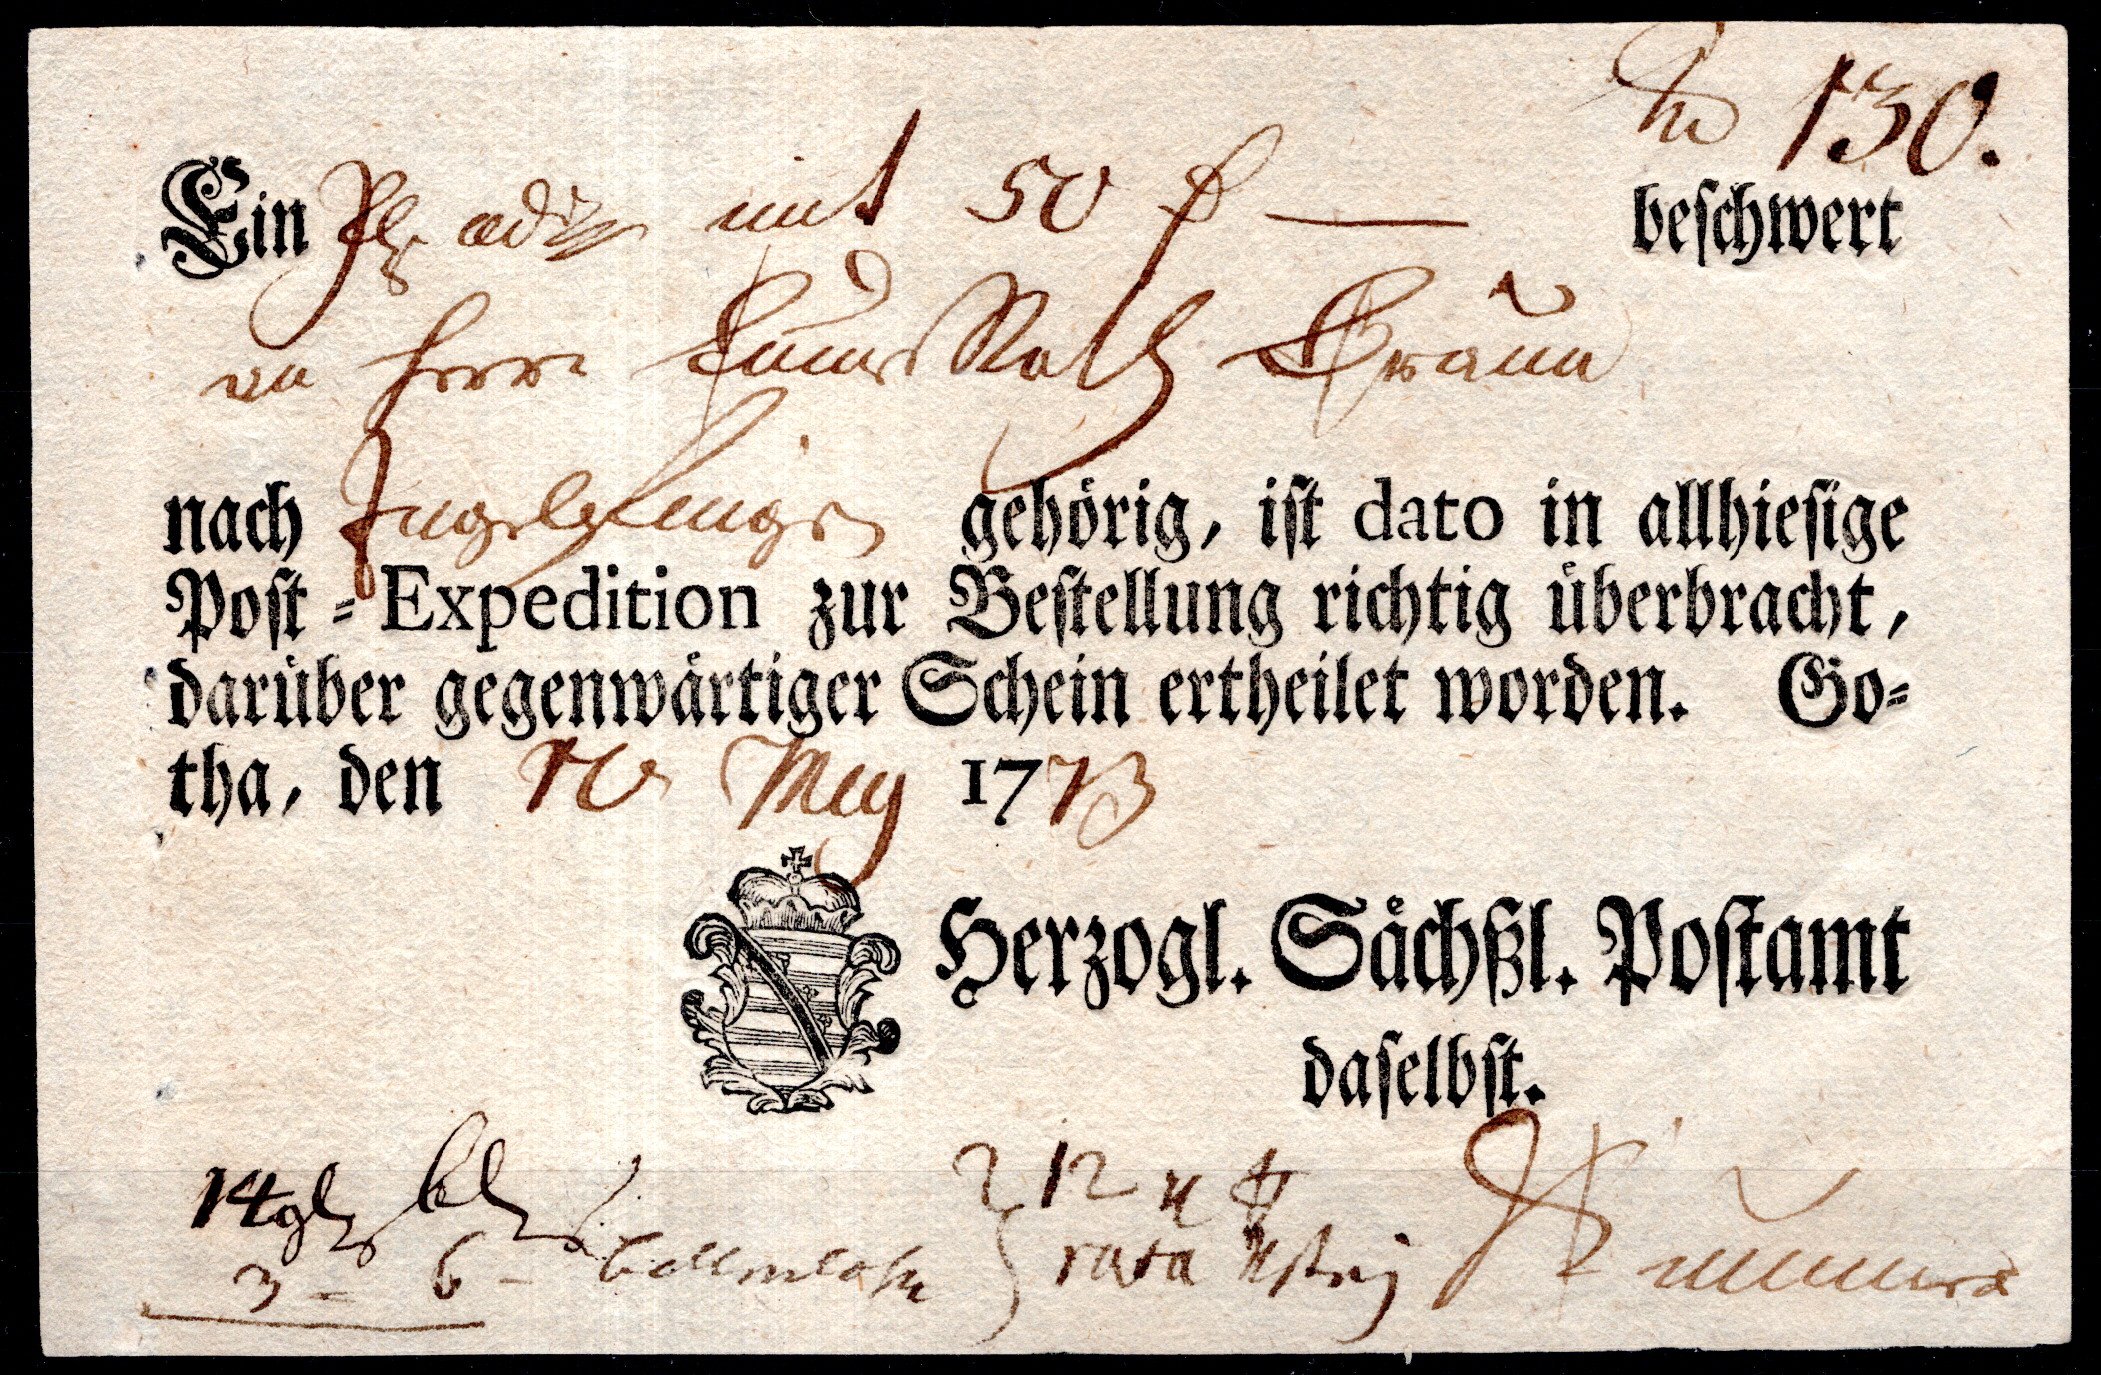 No 130.
Ein mit 50 beſchwert
an Herrn Rath Braun
nach Ingelfingen gehörig, iſt dato in allhieſige
Poſt-Expedition zur Beſtellung richtig überbracht,
darüber gegenwärtiger Schein ertheilet worden. Go-
tha, den 10 May 1773
Herzogl. Sächßl. Poſtamt
daſelbſt.
14 12
3 - 6 -